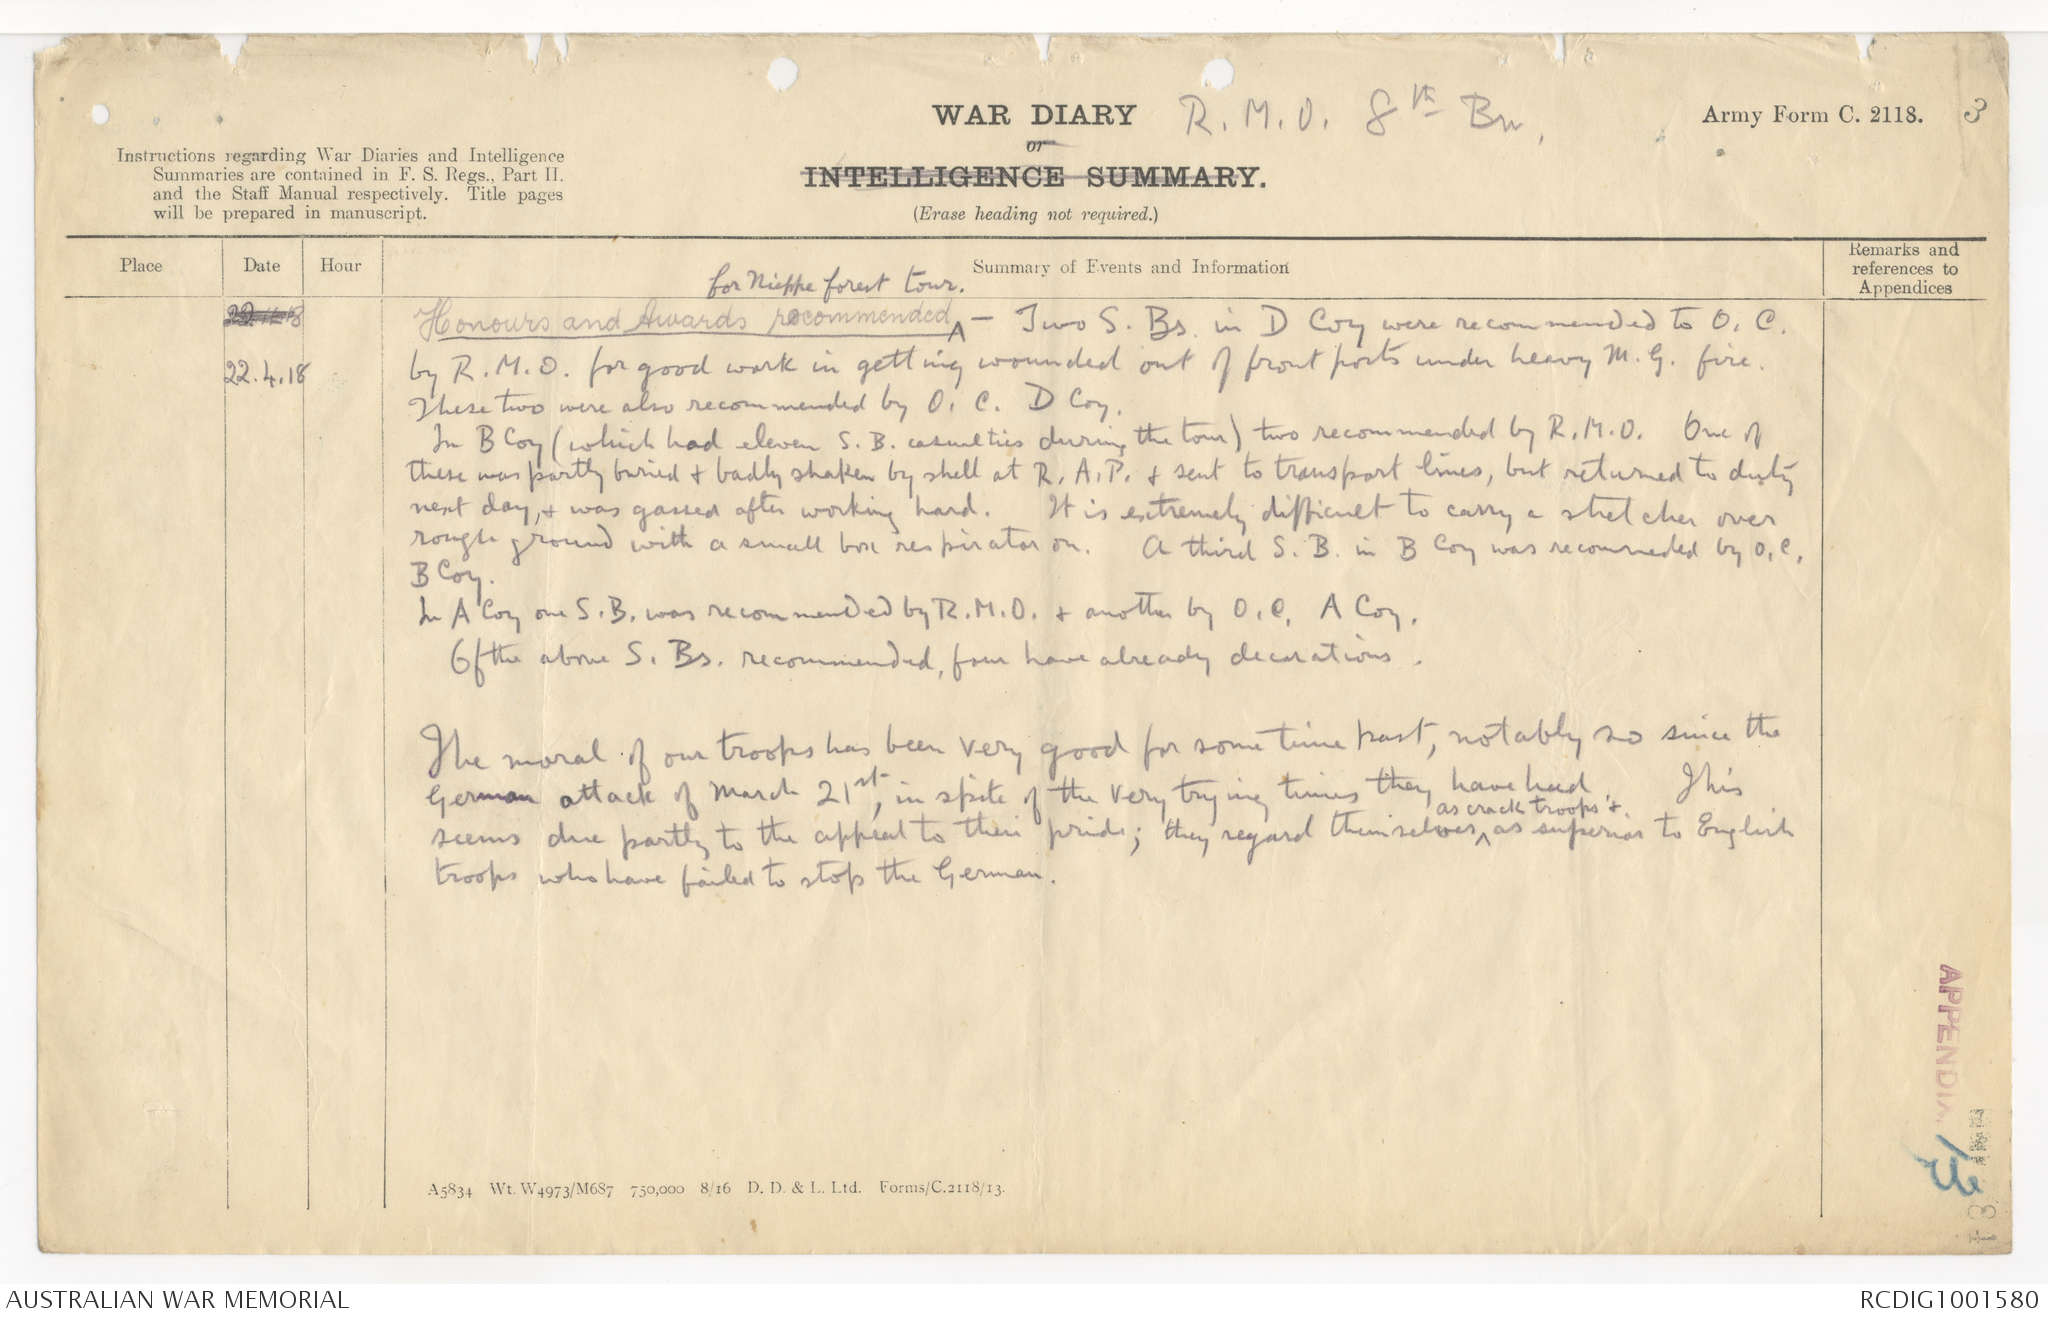 WAR DIARY R.M.O. 8th Bn,
Army Form C. 2118. 3
or
INTELLIGENCE SUMMARY.
(Erase heading not required.)
Instructions regarding War Diaries and Intelligence
Summaries are contained in F. S. Regs., Part II.
and the Staff Manual respectively. Title pages
will be prepared in manuscript.
Place
Date
Hour
Summary of Events and Information
Remarks and
references to
Appendices
for Nieppe forest tour.
22.4.18
Honours and Awards recommended ^ - Two S. Bs. in D Coy were recommended to O. C.
by R.M.O. for good work in getting wounded out of front posts under heavy M.G. fire.
These two were also recommended by O. C. D Coy.
In B Coy (which had eleven S. B. casualties during the tour) two recommended by R.M.O. One of
these was partly buried & badly shaken by shell at R.A.P. & sent to transport lines, but returned to duty
next day, & was gassed after working hard. It is extremely difficult to carry a stretcher over
rough ground with a small box respirator on. A third S. B. in B Coy was recommeded by O.C.
B Coy.
In A Coy one S.B. was recommended by R.M.O. & another by O.C. A Coy.
Of the above S. Bs. recommended, four have already decorations.
The moral of our troops has been very good for some time past, notably so since the
German attack of March 21st, in spite of the very trying times they have had. This
as crack troops &
seems due partly to the appeal to their pride; they regard themselves ^ as superior to English
troops who have failed to stop the German.
APPENDIX
A5834 Wt. W4973/M687 750,000 8/16 D. D. & L. Ltd. Forms/C.2118/13.
AUSTRALIAN WAR MEMORIAL
RCDIG1001580